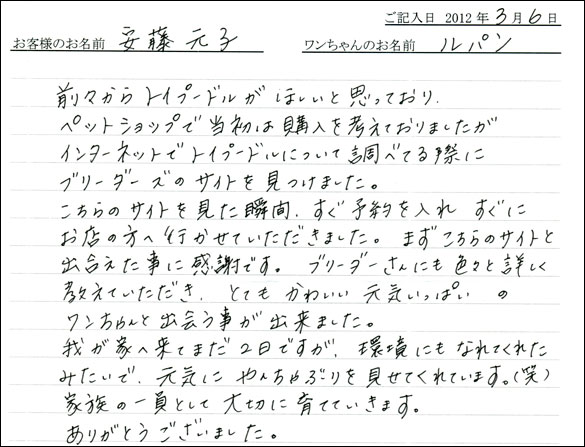 ご記入日 2012年3月6日
お客様のお名前 安藤 元子 ワンちゃんのお名前 ルパン
前々からトイプードルがほしいと思っており、
ペットショップで当初は購入を考えておりましたが
インターネットでトイプードルについて調べてる際に
ブリーダーズのサイトを見つけました。
こちらのサイトを見た瞬間、すぐ予約を入れ すぐに
お店の方へ行かせていただきました。まずこちらのサイトと
出合えた事に感謝です。ブリーダーさんにも色々と詳しく
教えていただき、とてもかわいい元気いっぱいの
ワンちゃんと出会う事が出来ました。
我が家へ来てまだ2日ですが、環境にもなれてくれた
みたいで、元気にやんちゃぶりを見せてくれています。(笑)
家族の一員として大切に育てていきます。
ありがとうございました。